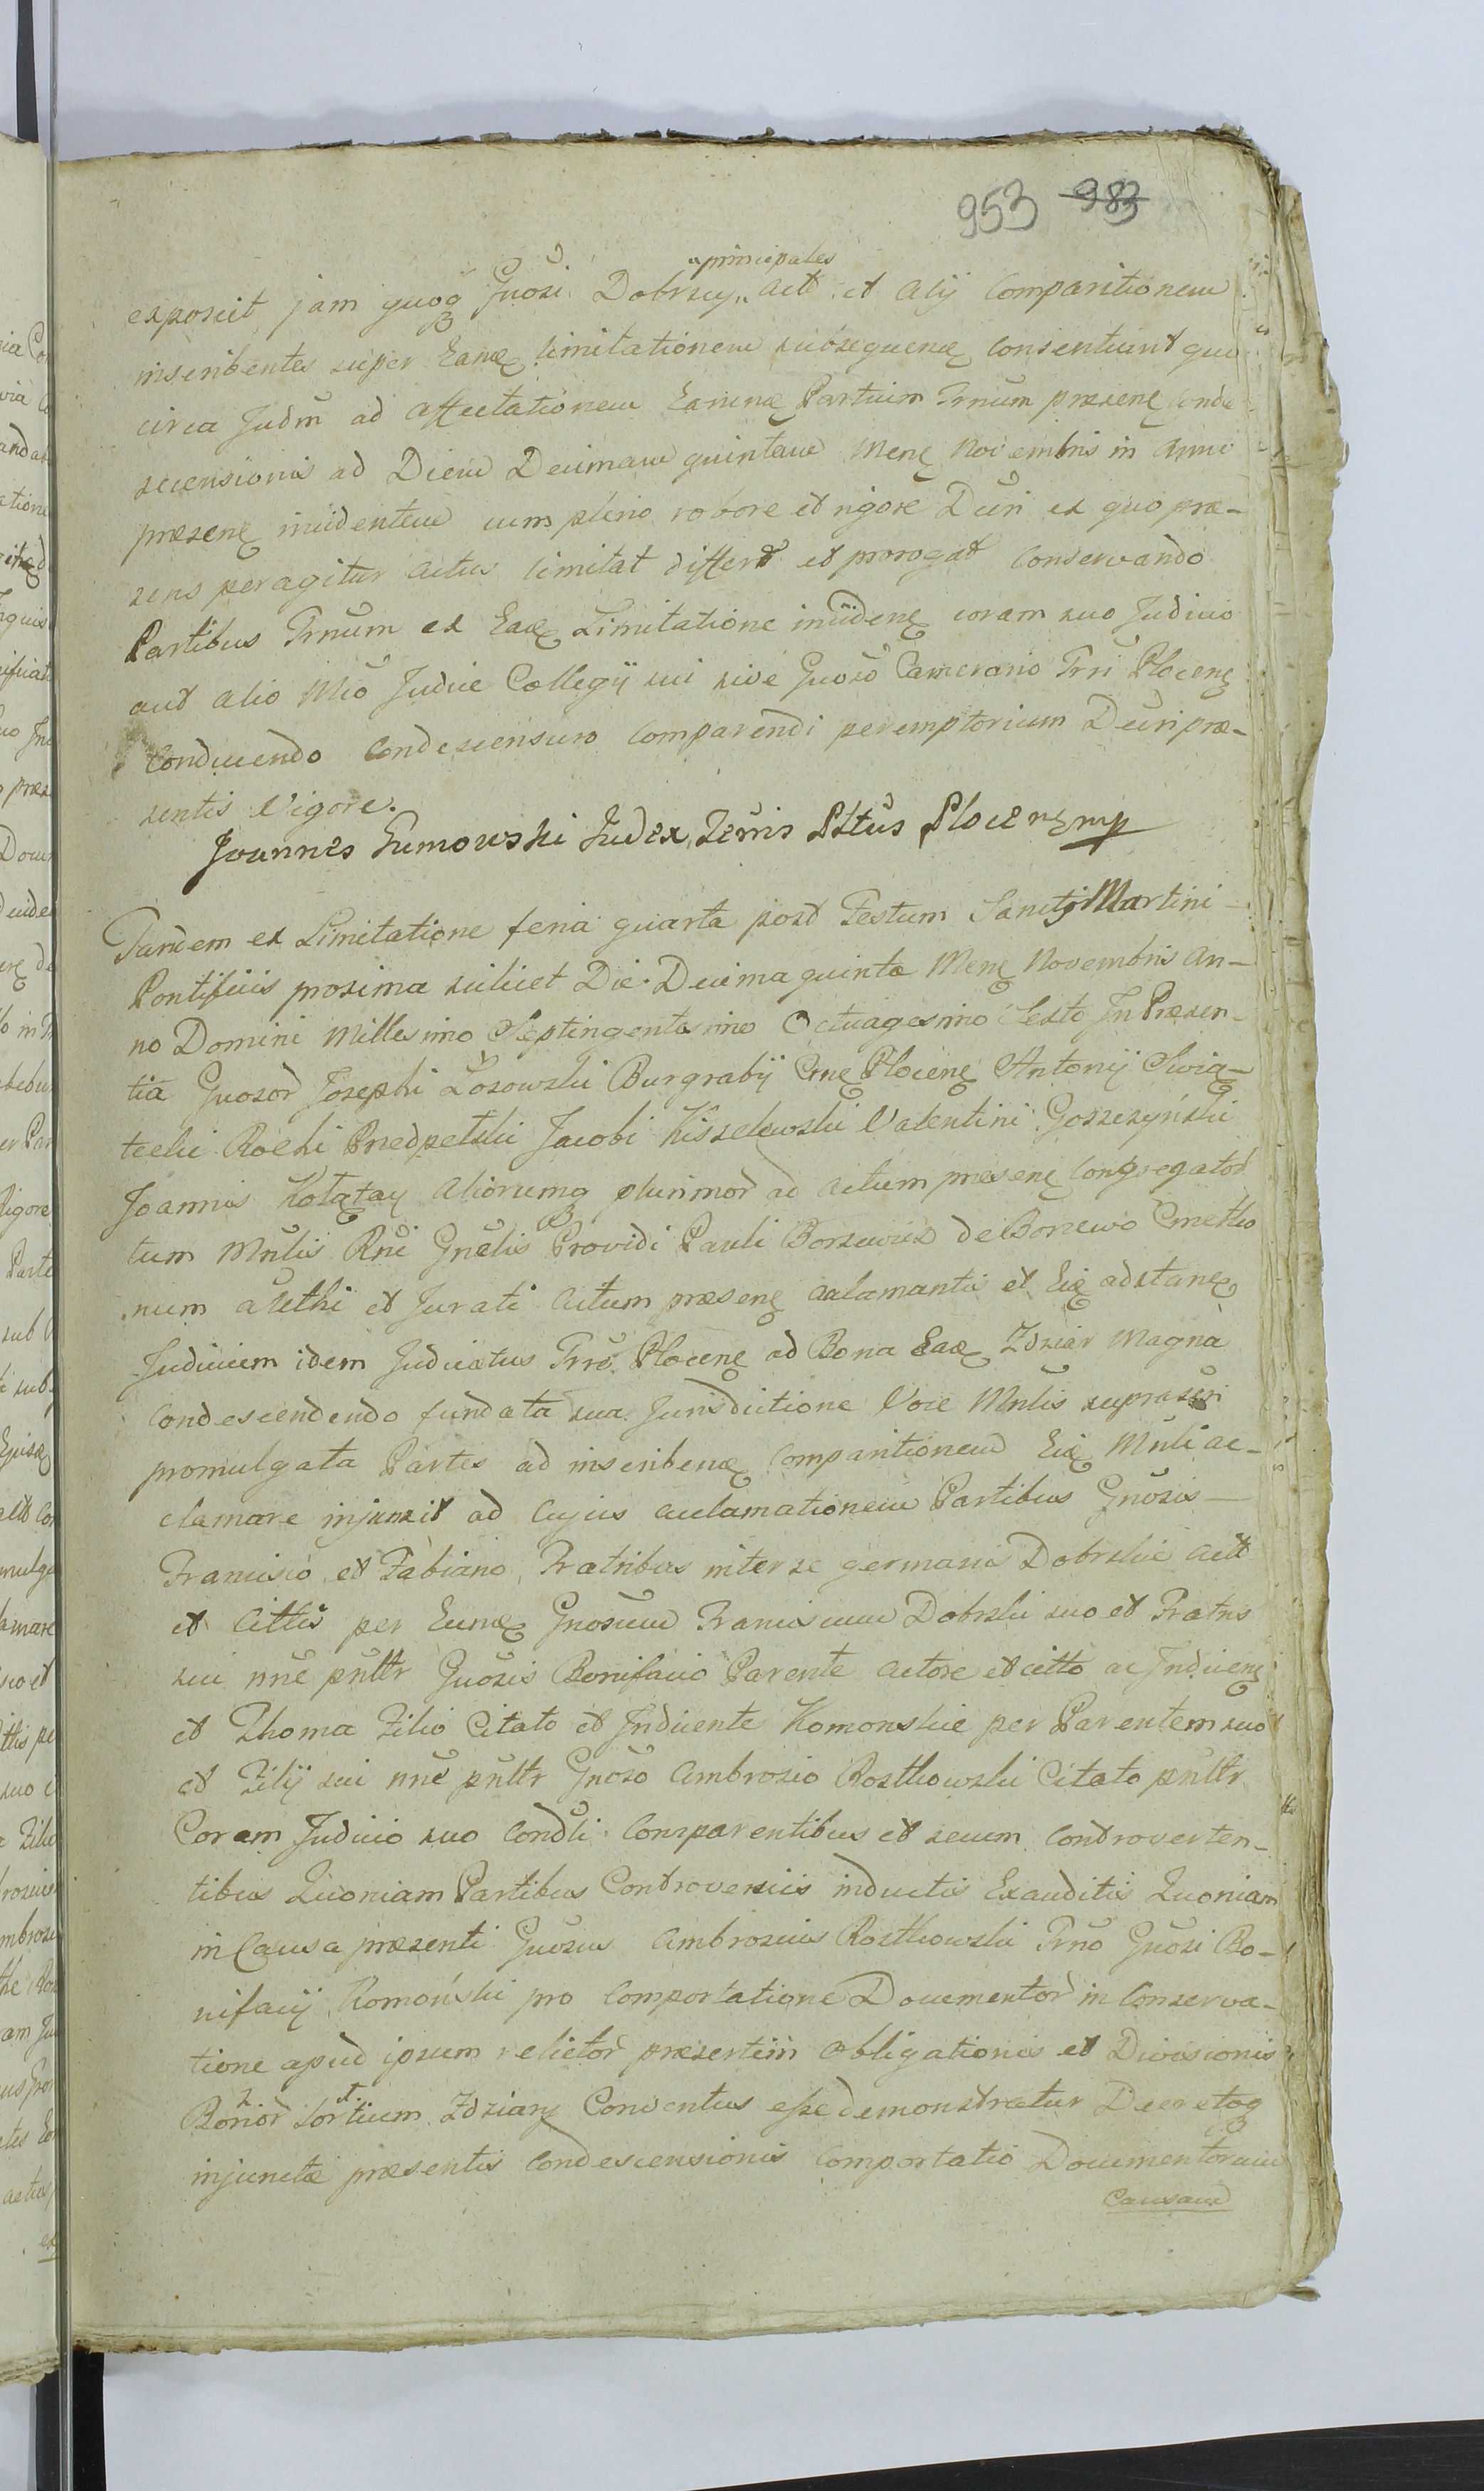 953 983
principales
exposcit jam quoq Gnosi Dobrscy Act et alij Comparitionem
inscribentes super Eanq limitationem subsequenq Consentiunt quo
circa Judm ad affectationem Earunq Partium Trnum præsenq Conde
scensionis ad Diem Decimam quintam Menq Novembris in anno
præsenq incidentem cum pleno robore et rigore Dcri ex quo præ-
sens peragitur actus limitat differt et prorogat Conservando
Partibus Trnum ex Eaq Limitatione incidenq coram suo Judicio
aut alio Mco Judice Collegij sui sive Gnoso Camerario Trri Plocenq
Conducendo Condescensuro Comparendi peremptorium Dcri præ-
sentis Vigore.
Joannes Gumowski Judex Terris Pltus Plocenq mp
Tandem ex Limitatione feria quarta post Festum Sancti Martini
Pontificis proxima scilicet Die Decima quinta Menq Novembris An-
no Domini Millesimo Septingentesimo Octuagesimo Sexto In Præsen-
tia Gnosor Josephi Łosowski Burgrabij Cnq Plocenq Antonij Swią-
tecki Rochi Przedpełski Jacobi Kisselewski Valentini Goszczyński
Joannis Kołątay Aliorumq plurimor ad actum præsenq Congregator
tum Mnlis Rni Gnelis Providi Pauli Borzewicz de Borzewo Cmetho
num alethi et Jurati actum præsenq aclamantis et Eiq adstanq
Judicium idem Judicatus Trris Plocenq ad Bona Eaq Zdziar Magna
Condescendendo fundata sua Jurisdictione Voce Mnlis suprascri
promulgata Partes ad inscribenq Comparitionem Eiq Mnli ac-
clamare injunxit ad Cujus acclamationem Partibus Gnosis
Francisco et Fabiano Fratribus inter se germanis Dobrskie Act
et Cittis per Eunq Gnosum Franciscum Dobrski suo et Fratris
sui nne pnttr Gnosis Bonifacio Parente actore et citto ac Inducenq
et Thoma Filio Citato et Inducente Komonskie per Parentem suo
et Filij sui nne pnttr Gnoso Ambrosio Rostkowski Citato pnttr
Coram Judicio suo Condli Comparentibus et secum Controverten-
tibus Quoniam Partibus Controversiis inductis Exauditis Quoniam
in Causa præsenti Gnosus Ambrosius Rostkowski Trno Gnosi Bo-
nifacij Komoński pro Comportatione Documentor in Conserva-
tione apud ipsum relictor præsertim Obligationis et Divisionis
Bonor Sortium Zdziary Conventus esse demonstratur Decretoq
injuncta præsentis Condescensionis Comportatio Documentorum
Causam